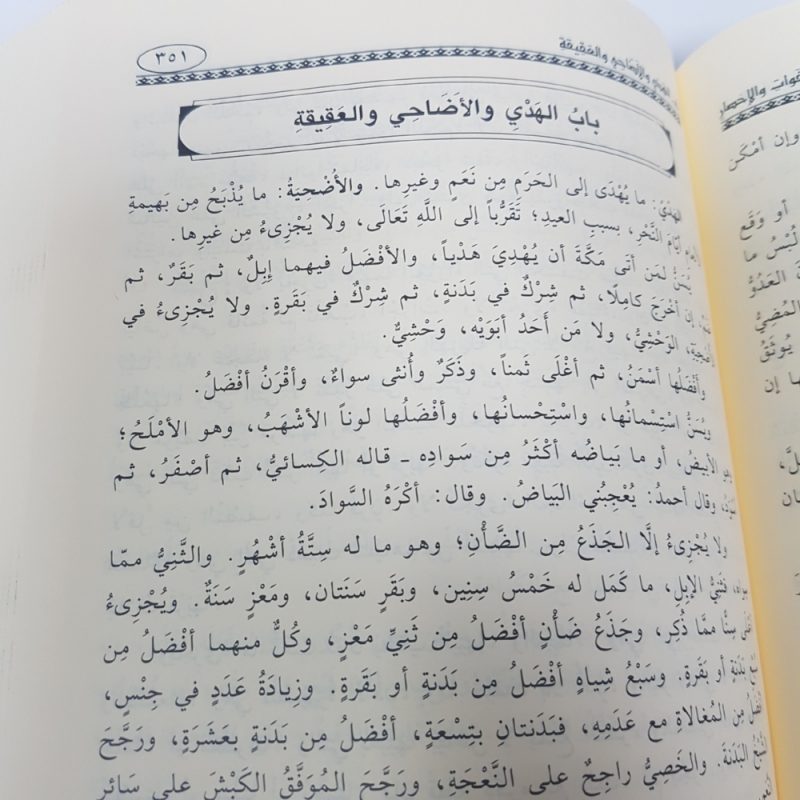 ٣٥١
والأضاحي والعقيقة
بابُ الهَدْيِ والأَضَاحِي والعَقِيقَةِ
الهَدْيُ: ما يُهْدَى إلى الحَرَمِ مِن نَعَمٍ وغيرِها. والأُضْحِيَةُ: ما يُذْبَحُ مِن بَهيمةِ
أيَّامَ النَّحْرِ، بسببِ العيدِ؛ تَقَرُّباً إلى اللَّهِ تَعَالَى، ولا يُجْزِىءُ مِن غيرِها.
يُسَنُّ لمَن أتَى مَكَّةَ أن يُهْدِيَ هَدْياً، والأفْضَلُ فيهما إبِلٌ، ثم بَقَرٌ، ثم
إن أخْرَجَ كامِلًا، ثم شِرْكٌ في بَدَنةٍ، ثم شِرْكٌ في بَقَرةٍ. ولا يُجْزِىءُ في
الوَحْشِيُّ، ولا مَن أحَدُ أبَوَيْه، وَحْشِيٌّ.
وأفْضَلُها أسْمَنُ، ثم أغْلَى ثَمناً، وذَكَرٌ وأُنثى سواءٌ، وأقْرَنُ أفْضَلُ.
ويُسَنُّ اسْتِسْمانُها، واسْتِحْسانُها، وأفْضَلُها لوناً الأشْهَبُ، وهو الأمْلَحُ؛
وهو الأبيضُ، أو ما بَياضُه أكْثَرُ مِن سَوادِه ـ قاله الكِسائيُّ، ثم أصْفَرُ، ثم
وقال أحمدُ: يُعْجِبُني البَياضُ. وقال: أكْرَهُ السَّوادَ.
ولا يُجْزِىءُ إلَّا الجَذَعُ مِن الضَّأْنِ؛ وهو ما له سِتَّةُ أشْهُرٍ. والثَّنِيُّ ممّا
سواه، فثَنِيُّ الإبِلِ، ما كَمَل له خَمْسُ سِنِين، وبَقَرٍ سَنَتان، ومَعْزٍ سَنَةٌ. ويُجْزِىءُ
أعْلَى سِنًّا ممّا ذُكِر، وجَذَعُ ضَأْنٍ أفْضَلُ مِن ثَنِيِّ مَعْزٍ، وكُلٌّ منهما أفْضَلُ مِن
سُبْعِ بَدَنةٍ أو بَقَرةٍ. وسَبْعُ شِياهٍ أفْضَلُ مِن بَدَنةٍ أو بَقَرةٍ. وزِيادَةُ عَدَدٍ في جِنْسٍ،
أفْضَلُ مِن المُغالاةِ مع عَدَمِه، فبَدَنتان بتِسْعَةٍ، أفْضَلُ مِن بَدَنةٍ بعَشَرَةٍ، ورَجَّحَ
الشَّيْخُ البَدَنةَ. والخَصِيُّ راجِحٌ على النَّعْجَةِ، ورَجَّحَ المُوَفَّقُ الكَبْشَ على سَائرِ
الفوات والإحصار
وإن أمْكَن
أو وَقَع
لُبْسُ ما
العَدُوُّ
المُضِيُّ
يُوثَقُ
إن